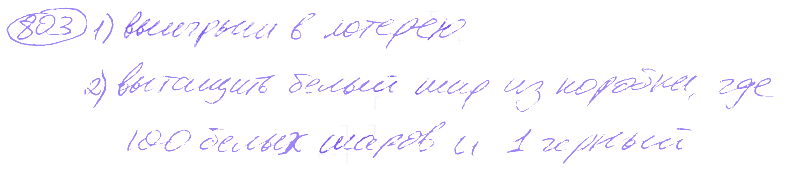 803 1) выигрыш в лотерею
2) вытащить белый шар из коробки, где
100 белых шаров и 1 черный